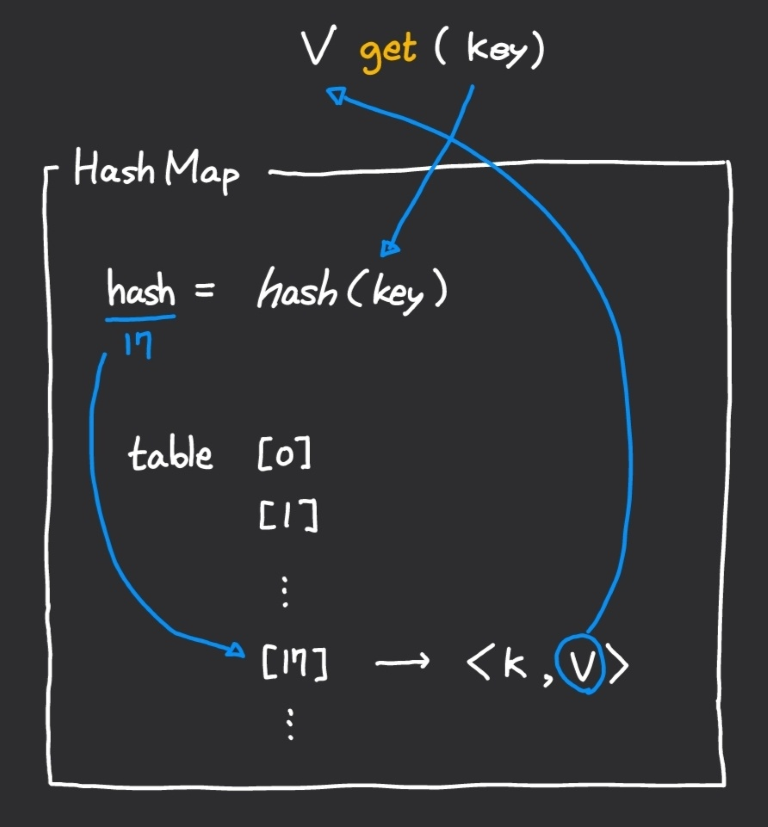 V get ( key)
Hash Map
hash = hash (key)
17
table [0]
[1]
⋮
[17] → <k, V>
⋮